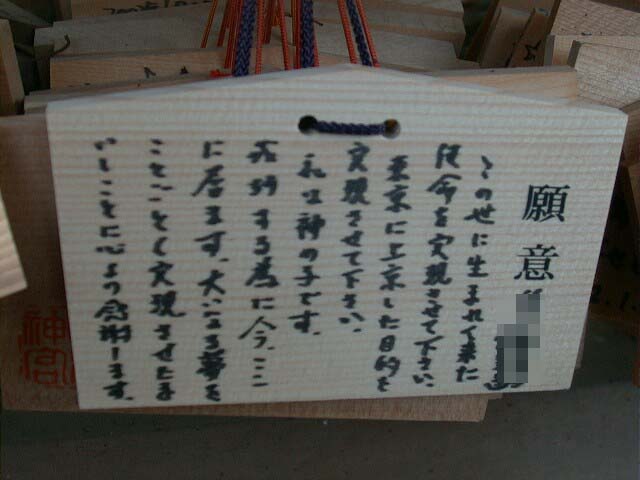 願意
この世に生まれて来た
使命を実現させて下さい。
東京に上京した目的を
実現させて下さい。
私は神の子です。
成功する為に今、ここ
に居ます。大いなる夢を
ことごとく実現させたま
いしことに心より感謝します。
神宮